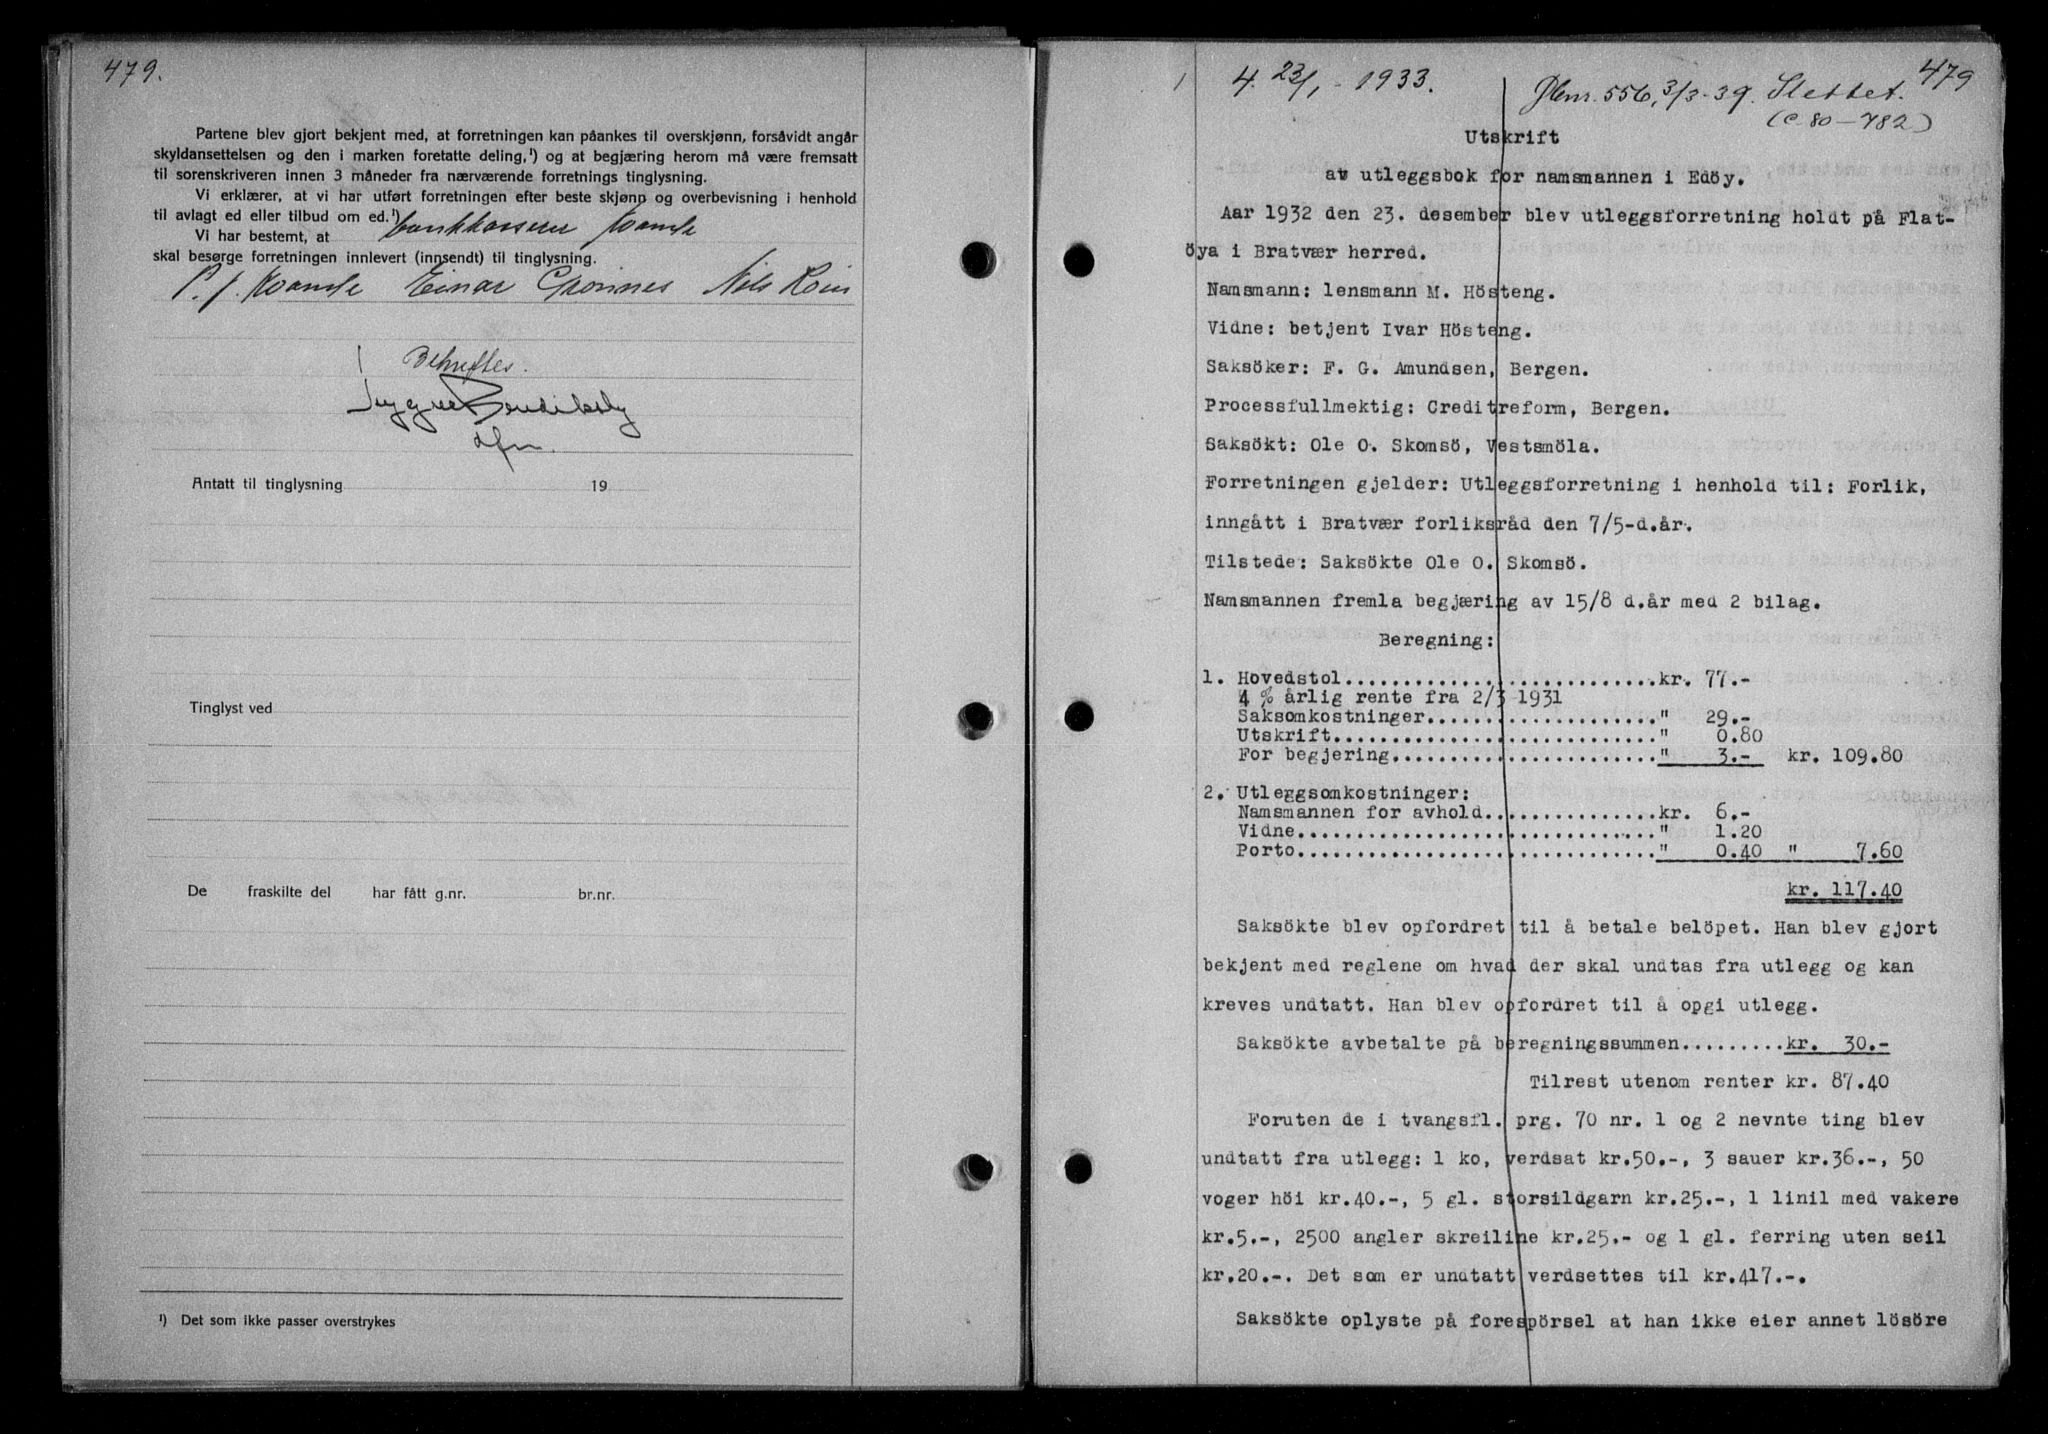 479.
Partene blev gjort bekjent med, at forretningen kan påankes til overskjønn, forsåvidt angår
skyldansettelsen og den i marken foretatte deling,¹) og at begjæring herom må være fremsatt
til sorenskriveren innen 3 måneder fra nærværende forretnings tinglysning.
Vi erklærer, at vi har utført forretningen efter beste skjønn og overbevisning i henhold
til avlagt ed eller tilbud om ed.¹)
Vi har bestemt, at bankkasserer
skal besørge forretningen innlevert (innsendt) til tinglysning.
Einar Grønnes Nils
Bekreftes.
Antatt til tinglysning 19
Tinglyst ved
De fraskilte del har fått g.nr. br.nr.
¹) Det som ikke passer overstrykes
479
1 4. 23/1 - 1933.
556, 3/3-39. Slettet.
(C 80-782)
Utskrift
av utleggsbok for namsmannen i Edöy.
Aar 1932 den 23. desember blev utleggsforretning holdt på Flat-
öya i Bratvær herred.
Namsmann: lensmann M. Hösteng.
Vidne: betjent Ivar Hösteng.
Saksöker: F. G. Amundsen, Bergen.
Processfullmektig: Creditreform, Bergen.
Saksökt: Ole O. Skomsö, Vestsmöla.
Forretningen gjelder: Utleggsforretning i henhold til: Forlik,
inngått i Bratvær forliksråd den 7/5-d.år.
Tilstede: Saksökte Ole O. Skomsö.
Namsmannen fremla begjæring av 15/8 d.år med 2 bilag.
Beregning:
1. Hovedstol............................kr. 77.-
4 % årlig rente fra 2/3 1931
Saksomkostninger.....................  "  29.-
Utskrift.............................  "  0.80
For begjering........................  "  3.-  kr. 109.80
2. Utleggsomkostninger:
Namsmannen for avhold...............kr.  6.-
Vidne................................  "  1.20
Porto................................  "  0.40  "  7.60
kr. 117.40
Saksökte blev opfordret til å betale belöpet. Han blev gjort
bekjent med reglene om hvad der skal undtas fra utlegg og kan
kreves undtatt. Han blev opfordret til å opgi utlegg.
Saksökte avbetalte på beregningssummen.........kr. 30.-
Tilrest utenom renter kr. 87.40
Foruten de i tvangsfl. prg. 70 nr. 1 og 2 nevnte ting blev
undtatt fra utlegg: 1 ko, verdsat kr.50.-, 3 sauer kr.36.-, 50
voger höi kr.40.-, 5 gl. storsildgarn kr.25.-, 1 linil med vakere
kr.5.-, 2500 angler skreiline kr.25.- og 1 gl. ferring uten seil
kr.20.-. Det som er undtatt verdsettes til kr.417.-.
Saksökte oplyste på forespörsel at han ikke eier annet lösöre